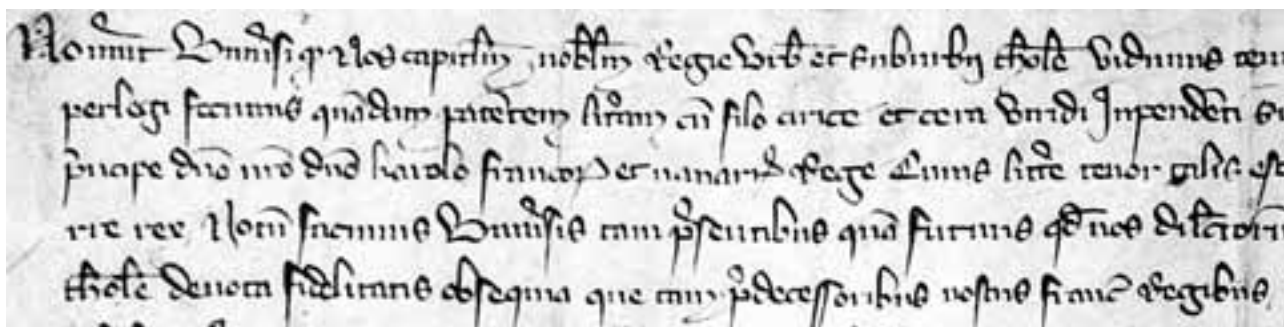 Noverit Universi qd Nos capitulm nobilm Regie Urb et suburbij thole vidimus
perlegi fecimus quadam patentem litam cu filo cirice et cera viridi Inpendeti
principe dno nro dno karolo francorum et navarre Rege Cuius littere tenor talis est
rie rex Notu facimus Univsis tam psentibus qua futuris qd nos
thole devota fidelitatis obsequia que tam pdecessoribus nostris franc Regibus